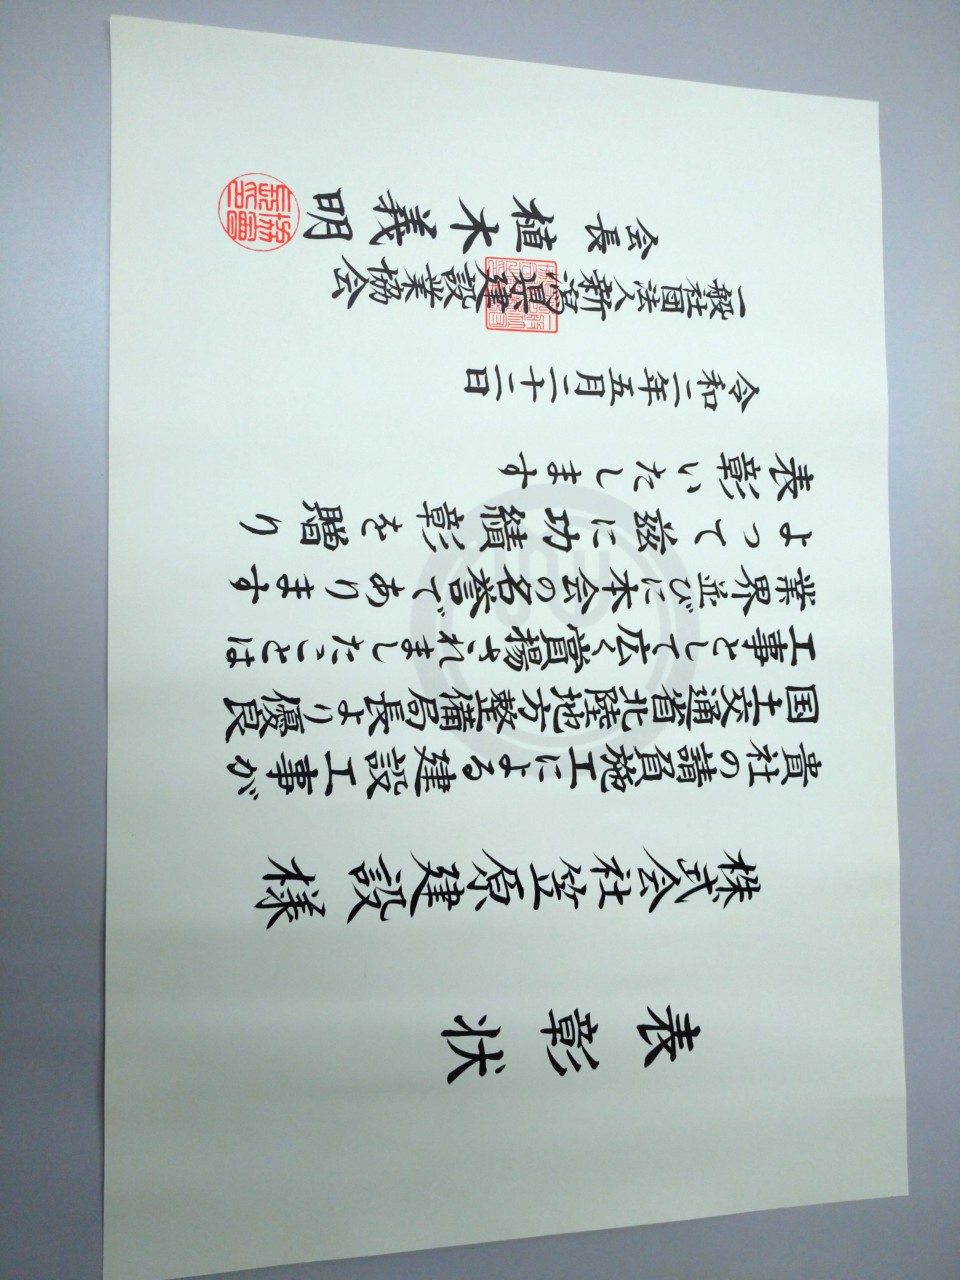 表彰状
株式会社笠原建設様
貴社の請負施工による建設工事が
国土交通省北陸地方整備局長より優良
工事として広く賞揚されましたことは
業界並びに本会の名誉であります
よって茲に功績彰を贈り
表彰いたします
令和二年五月二十二日
一般社団法人新潟県建設業協会
会長 植木義明